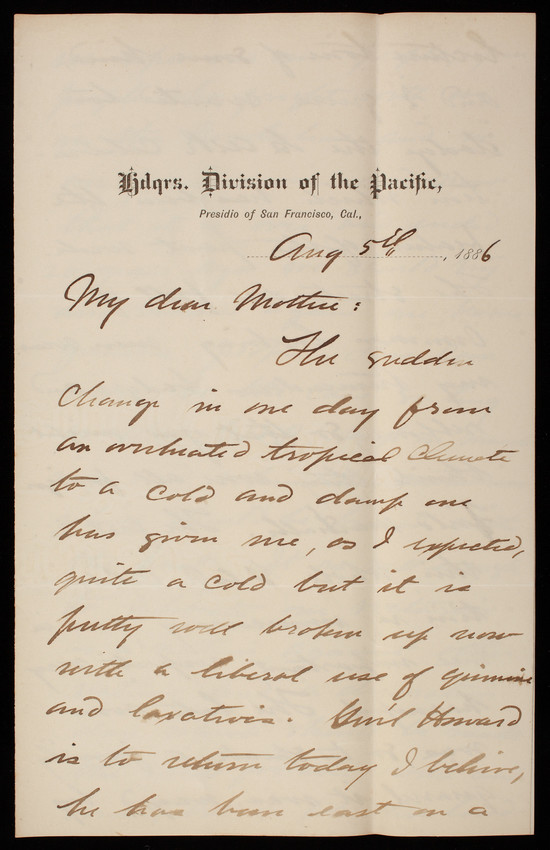 Hdqrs. Division of the Pacific,
Presidio of San Francisco, Cal.,
Aug 5th, 1886
My dear Mother:
The sudden
change in one day from
an overheated tropical climate
to a cold and damp one
has given me, as I expected,
quite a cold but it is
pretty well broken up now
with a liberal use of quinine
and laxatives. Gen'l Howard
is to return today I believe,
he has been east on a